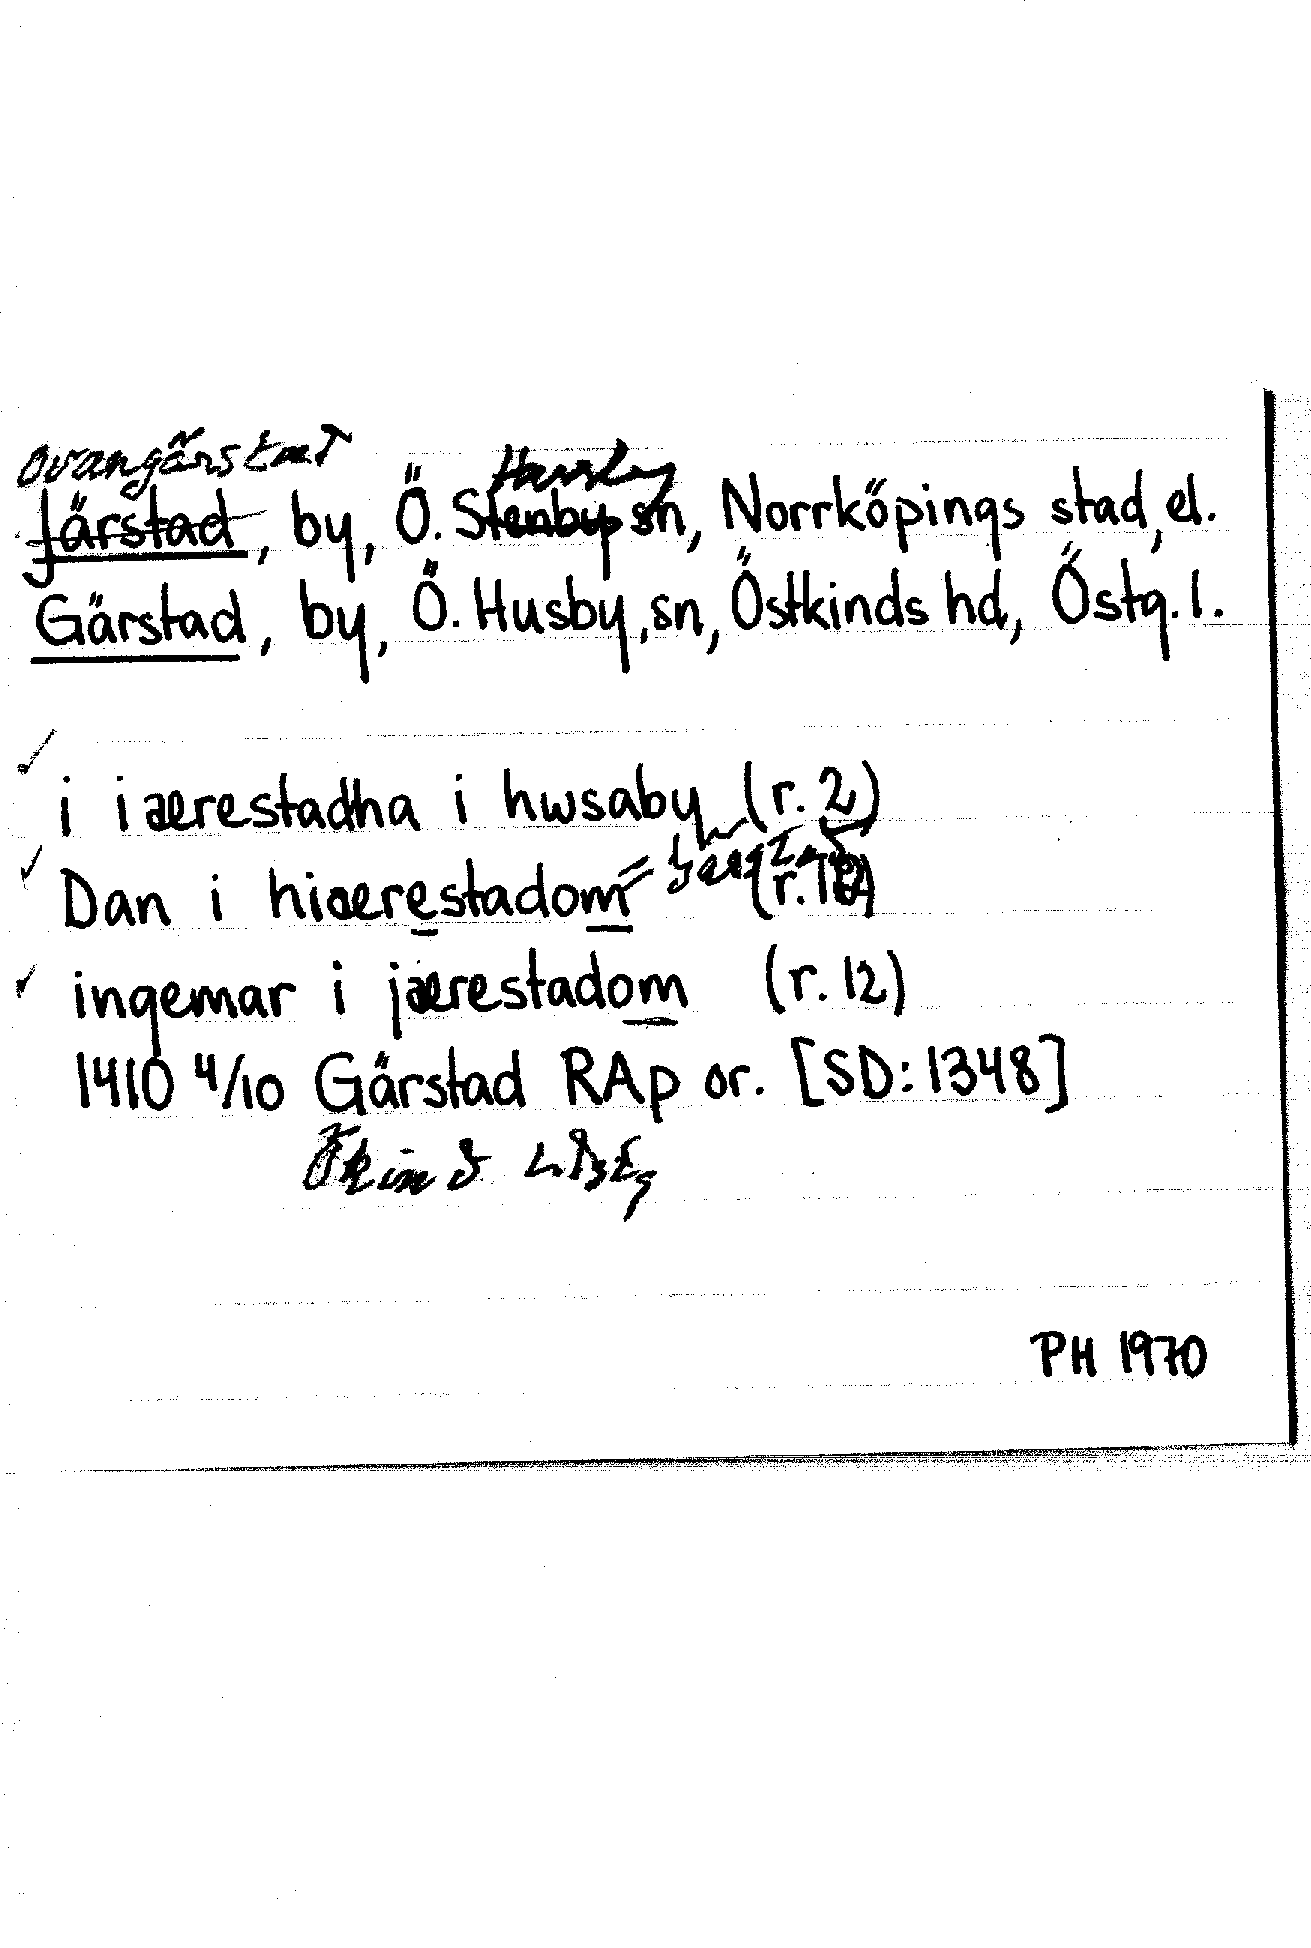 Ovangärstad
Järstad, by, Ö. Stenby sn, Norrköpings stad, el.
Gärstad, by, Ö. Husby, sn, Östkinds hd, Östg. l.
i iærestadha i hwsaby (r. 2)
Dan i hiærestadom (r. 12)
ingemar i jærestadom (r. 12)
1410 4/10 Gärstad RAp or. [SD: 1348]
PH 1970